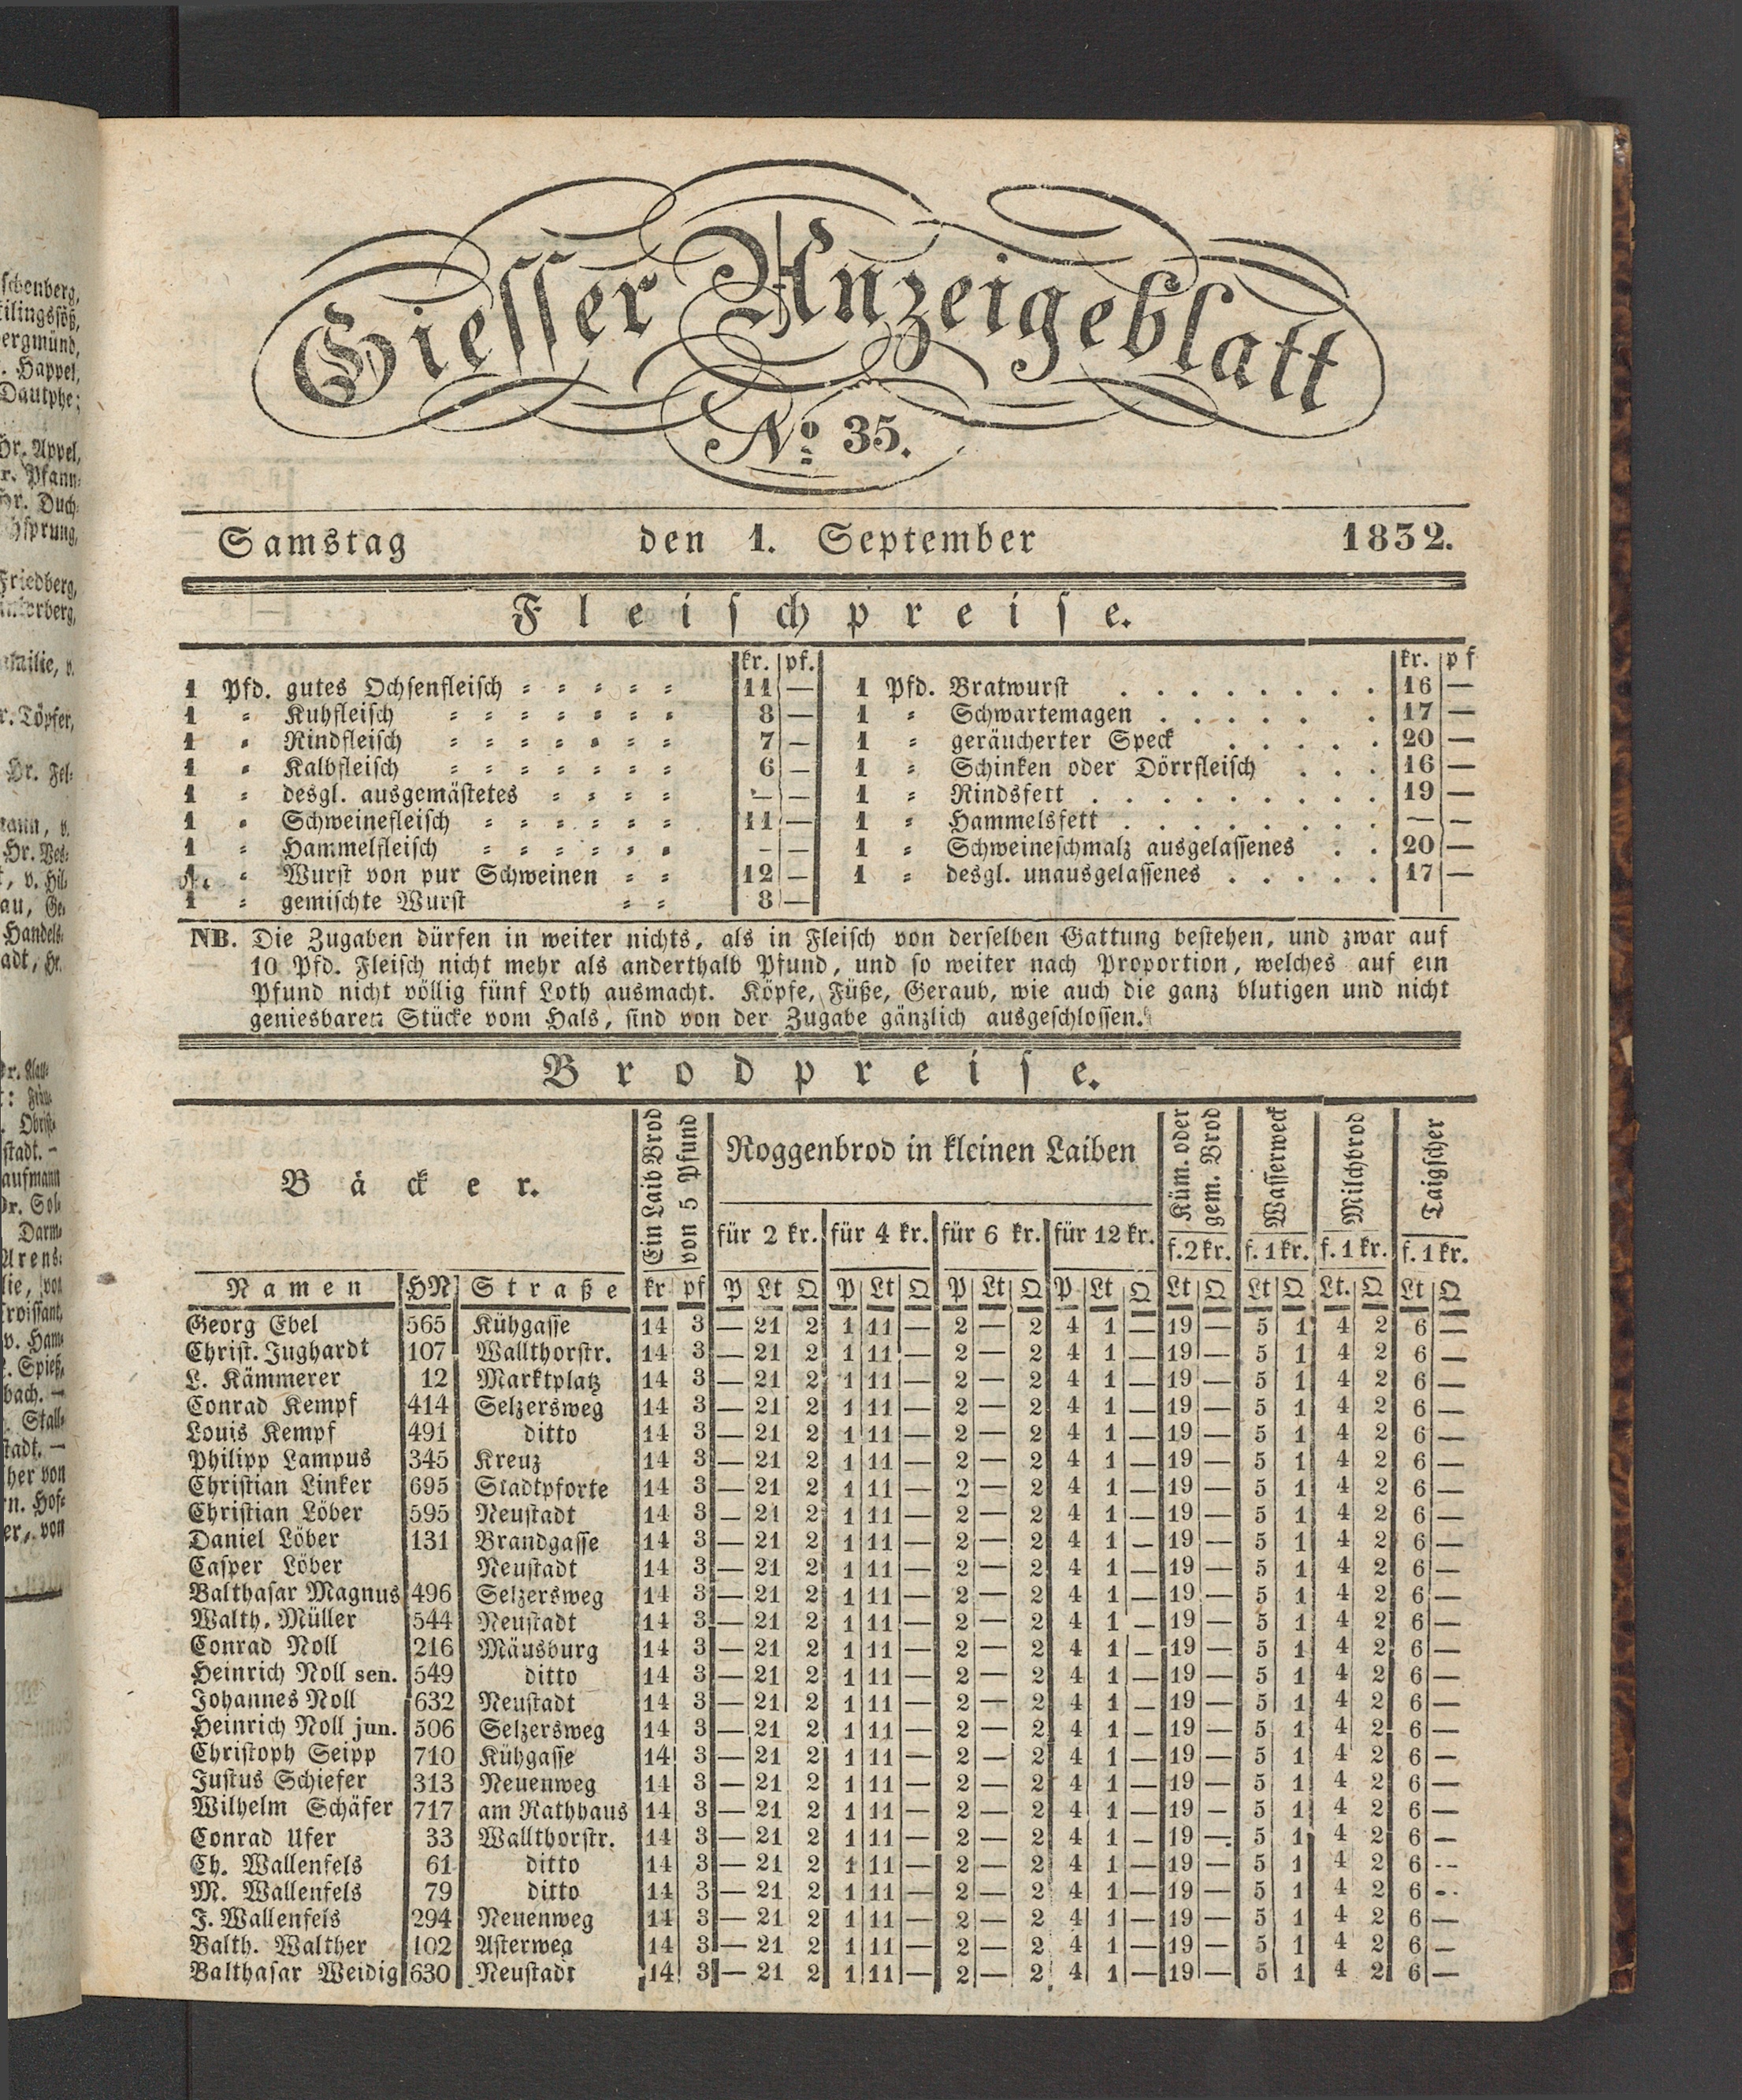 schenberg,
ergmünd,
. Happel,
Dautphe;
Hr. Appel,
r. Pfann-
Hr. Duch-
Friedberg,
r. Töpfer,
Hr. Fel-
Handels-
stadt. -
aufmann
Darm-
bach. —
her von
er, von
Giesser Anzeigeblatt
No 35.
Samstag den 1. September 1832.
Fleischpreise.
kr. pf. kr. pf
1 Pfd. gutes Ochsenfleisch = = = = = 11 — 1 Pfd. Bratwurst . . . . . . . . 16 —
1 = Kuhfleisch = = = = = = = 8 — 1 = Schwartemagen . . . . . . 17 —
1 = Rindfleisch = = = = = = = 7 — 1 = geräucherter Speck . . . . . 20 —
1 = Kalbfleisch = = = = = = = 6 — 1 = Schinken oder Dörrfleisch . . . 16 —
1 = desgl. ausgemästetes = = = = — — 1 = Rindsfett . . . . . . . . . 19 —
1 = Schweinefleisch = = = = = = 11 — 1 = Hammelsfett . . . . . . . . — —
1 = Hammelfleisch = = = = = = — — 1 = Schweineschmalz ausgelassenes . . 20 —
1 = Wurst von pur Schweinen = = 12 — 1 = desgl. unausgelassenes . . . . . 17 —
1 = gemischte Wurst = = 8 —
NB. Die Zugaben dürfen in weiter nichts, als in Fleisch von derselben Gattung bestehen, und zwar auf
10 Pfd. Fleisch nicht mehr als anderthalb Pfund, und so weiter nach Proportion, welches auf ein
Pfund nicht völlig fünf Loth ausmacht. Köpfe, Füße, Geraub, wie auch die ganz blutigen und nicht
geniesbaren Stücke vom Hals, sind von der Zugabe gänzlich ausgeschlossen.
Brodpreise.
Bäcker.
Ein Laib Brod
von 5 Pfund
Roggenbrod in kleinen Laiben
Küm. oder
gem. Brod
Wasserweck
Milchbrod
Taigscher
für 2 kr. für 4 kr. für 6 kr. für 12 kr. f. 2 kr. f. 1 kr. f. 1 kr. f. 1 kr.
Namen HN Straße kr pf P Lt Q P Lt Q P Lt Q P Lt Q Lt Q Lt Q Lt. Q Lt Q
Georg Ebel 565 Kühgasse 14 3 — 21 2 1 11 — 2 — 2 4 1 — 19 — 5 1 4 2 6 —
Christ. Jughardt 107 Wallthorstr. 14 3 — 21 2 1 11 — 2 — 2 4 1 — 19 — 5 1 4 2 6 —
L. Kämmerer 12 Marktplatz 14 3 — 21 2 1 11 — 2 — 2 4 1 — 19 — 5 1 4 2 6 —
Conrad Kempf 414 Selzersweg 14 3 — 21 2 1 11 — 2 — 2 4 1 — 19 — 5 1 4 2 6 —
Louis Kempf 491 ditto 14 3 — 21 2 1 11 — 2 — 2 4 1 — 19 — 5 1 4 2 6 —
Philipp Lampus 345 Kreuz 14 3 — 21 2 1 11 — 2 — 2 4 1 — 19 — 5 1 4 2 6 —
Christian Linker 695 Stadtpforte 14 3 — 21 2 1 11 — 2 — 2 4 1 — 19 — 5 1 4 2 6 —
Christian Löber 595 Neustadt 14 3 — 21 2 1 11 — 2 — 2 4 1 — 19 — 5 1 4 2 6 —
Daniel Löber 131 Brandgasse 14 3 — 21 2 1 11 — 2 — 2 4 1 — 19 — 5 1 4 2 6 —
Casper Löber Neustadt 14 3 — 21 2 1 11 — 2 — 2 4 1 — 19 — 5 1 4 2 6 —
Balthasar Magnus 496 Selzersweg 14 3 — 21 2 1 11 — 2 — 2 4 1 — 19 — 5 1 4 2 6 —
Walth. Müller 544 Neustadt 14 3 — 21 2 1 11 — 2 — 2 4 1 — 19 — 5 1 4 2 6 —
Conrad Noll 216 Mäusburg 14 3 — 21 2 1 11 — 2 — 2 4 1 — 19 — 5 1 4 2 6 —
Heinrich Noll sen. 549 ditto 14 3 — 21 2 1 11 — 2 — 2 4 1 — 19 — 5 1 4 2 6 —
Johannes Noll 632 Neustadt 14 3 — 21 2 1 11 — 2 — 2 4 1 — 19 — 5 1 4 2 6 —
Heinrich Noll jun. 506 Selzersweg 14 3 — 21 2 1 11 — 2 — 2 4 1 — 19 — 5 1 4 2 6 —
Christoph Seipp 710 Kühgasse 14 3 — 21 2 1 11 — 2 — 2 4 1 — 19 — 5 1 4 2 6 —
Justus Schiefer 313 Neuenweg 14 3 — 21 2 1 11 — 2 — 2 4 1 — 19 — 5 1 4 2 6 —
Wilhelm Schäfer 717 am Rathhaus 14 3 — 21 2 1 11 — 2 — 2 4 1 — 19 — 5 1 4 2 6 —
Conrad Ufer 33 Wallthorstr. 14 3 — 21 2 1 11 — 2 — 2 4 1 — 19 — 5 1 4 2 6 —
Ch. Wallenfels 61 ditto 14 3 — 21 2 1 11 — 2 — 2 4 1 — 19 — 5 1 4 2 6 —
M. Wallenfels 79 ditto 14 3 — 21 2 1 11 — 2 — 2 4 1 — 19 — 5 1 4 2 6 —
J. Wallenfels 294 Neuenweg 14 3 — 21 2 1 11 — 2 — 2 4 1 — 19 — 5 1 4 2 6 —
Balth. Walther 102 Asterweg 14 3 — 21 2 1 11 — 2 — 2 4 1 — 19 — 5 1 4 2 6 —
Balthasar Weidig 630 Neustadt 14 3 — 21 2 1 11 — 2 — 2 4 1 — 19 — 5 1 4 2 6 —